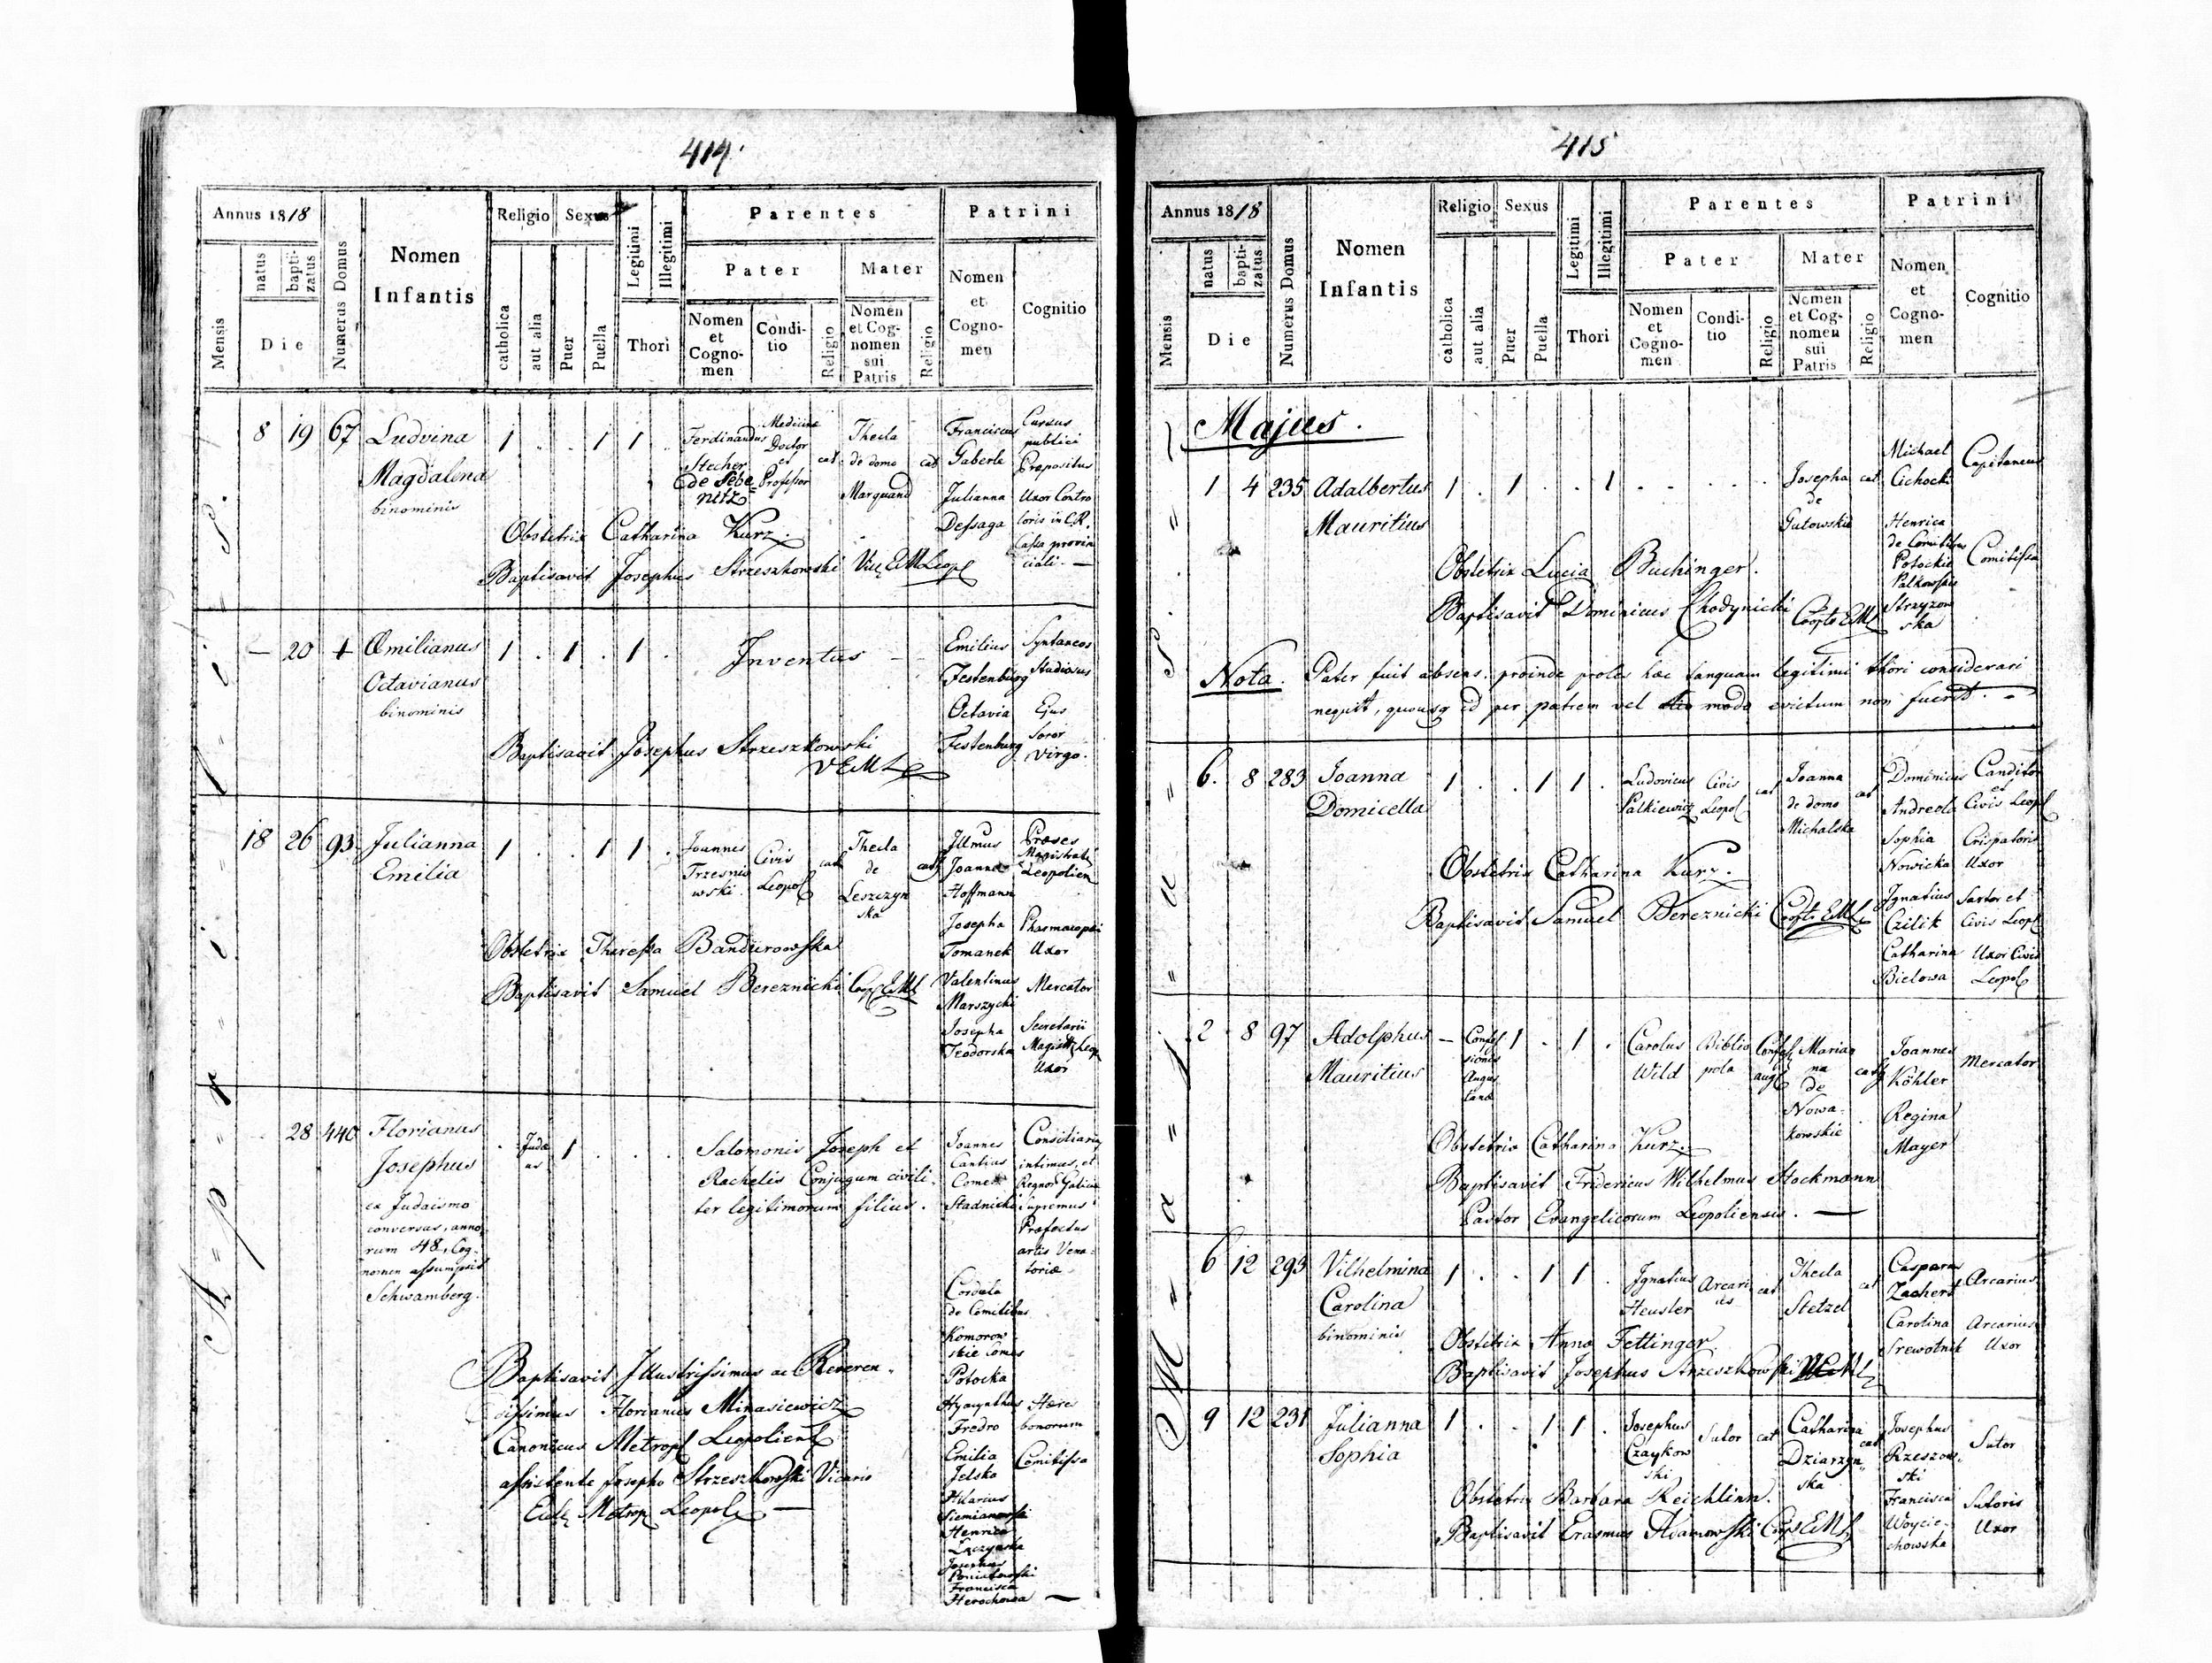 414.
Annus 1818
Mensis
natus
bapti-
zatus
Die
Numerus Domus
Nomen
Infantis
Religio
catholica
aut alia
Sexus
Puer
Puella
Legitimi
Illegitimi
Thori
Parentes
Pater
Nomen
et
Cogno-
men
Condi-
tio
Religio
Mater
Nomen
et Cog-
nomen
sui
Patris
Religio
Patrini
Nomen
et
Cogno-
men
Cognitio
Aprilis
8 19 67 Ludvina
Magdalena
binominis
1 . . 1 1 .
Ferdinandus
Stecher
de Sebe=
nitz
Medicinæ
Doctor
et
Professor
cat.
Thecla
de domo
Marquand
cat
Franciscus
Gaberle
Cursus
publici
Præpositus
Julianna
Dessaga
Uxor Contro
loris in C.R.
Cassa provin
ciali. —
Obstetrix Catharina Kurz.
Baptisavit Josephus Strzeszkowski Vic EMLeopl
— 20 1 Æmilianus
Octavianus
binominis
1 . 1 . 1 .
Inventus
Emilius
Festenburg
Syntaxeos
Studiosus
Octavia
Festenburg
Ejus
Soror
Virgo.
Baptisavit Josephus Strzeszkowski
VEML
18 26 93 Julianna
Emilia
1 . . 1 1 .
Joannes
Trzesnio
wski
Civis
Leopol
cat
Thecla
de
Leszczyn
ska
cath
Illmus
Joannes
Hoffmann
Præses
Magistrati
Leopolien
Josepha
Tomanek
Pharmacopei
Uxor
Valentinus
Marszycki
Mercator
Josepha
Teodorska
Secretarii
Magistr Leop
Uxor
Obstetrix Theressa Bandurowska
Baptisavit Samuel Bereznicki Coop EML
28 440 Florianus
Josephus
ex Judaismo
conversus, anno
rum 48, Cog-
nomen assumpsit
Schwamberg.
Judæ
us
1 . . .
Salomonis Joseph et
Rachelis Conjugum civili
ter legitimorum filius.
Joannes
Cantius
Comes
Stadnicki
Consiliarius
intimus, et
Regnor Galiciæ
supremus
Præfectus
artis Vena=
toriæ
Cordula
de Comitibus
Komorow
skie Comes
Potocka
Hyacynthus
Fredro
Hæres
bonorum
Emilia
Jelska
Comitissa
Hilarius
Siemianowski
Henrica
Łączyńska
Josephus
Poniatowski
Francisca
Herochowa —
Baptisavit Illustrissimus ac Reveren-
dissimus Florianus Minasiewicz
Canonicus Metropl Leopoliens
assistente Josepho Strzeszkowski Vicario
Eccl Metrop Leopol —
415
Annus 1818
Mensis
natus
bapti-
zatus
Die
Numerus Domus
Nomen
Infantis
Religio
catholica
aut alia
Sexus
Puer
Puella
Legitimi
Illegitimi
Thori
Parentes
Pater
Nomen
et
Cogno-
men
Condi-
tio
Religio
Mater
Nomen
et Cog-
nomen
sui
Patris
Religio
Patrini
Nomen
et
Cogno-
men
Cognitio
Majus
Majus.
1 4 235 Adalbertus
Mauritius
1 . 1 . . 1
Josepha
de
Gutowskie
cat
Michael
Cichocki
Capitaneus
Henrica
de Comitibus
Potockie
Palkowskie
Strzyzow
ska
Comitissa
Obstetrix Lucia Buchinger.
Baptisavit Dominicus Chodynicki Coopto EML
Nota. Pater fuit absens. proinde proles hæc tanquam legitimi thori considerari
nequit, quousq id per patrem vel modo evictum non fuerit. —
6. 8 283 Joanna
Domicella
1 . . 1 1 .
Ludovicus
Palkiewicz
Civis
Leopol
cat
Joanna
de domo
Michalska
cat
Dominicus
Andreola
Candito
et
Civis Leopl
Sophia
Nowicka
Crispatoris
Uxor
Ignatius
Czilik
Sartor et
Civis Leopl
Catharina
Bielowa
Uxor Civis
Leopol
Obstetrix Catharina Kurz.
Baptisavit Samuel Bereznicki Coopto EML
2 8 97 Adolphus
Mauritius
— Confes
sionis
Augus
tanæ
1 . 1 .
Carolus
Wild
Biblio
pola
Confess
aug
Marian
na
de
Nowa-
kowskie
cath
Joannes
Köhler
Mercator
Regina
Mayer
Obstetrix Catharina Kurz.
Baptisavit Fridericus Wilhelmus Stockmann
Pastor Evangelicorum Leopoliensis. —
6 12 293 Vilhelmina
Carolina
binominis
1 . . 1 1 .
Ignatius
Heusler
Arcari
us
cat
Thecla
Stetzel
cat
Casparus
Zachert
Arcarius
Carolina
Srewotnik
Arcarius
Uxor
Obstetrix Anna Fettinger
Baptisavit Josephus Strzeszkowski VEML
9 12 231 Julianna
Sophia
1 . . 1 1 .
Josephus
Czaykow
ski
Sutor
cat
Catharina
Dziarzyn-
ska
cat
Josephus
Rzeszow-
ski
Sutor
Francisca
Woycie-
chowska
Sutoris
Uxor
Obstetrix Barbara Reichlinn.
Baptisavit Erasmus Adamowski Coop EML